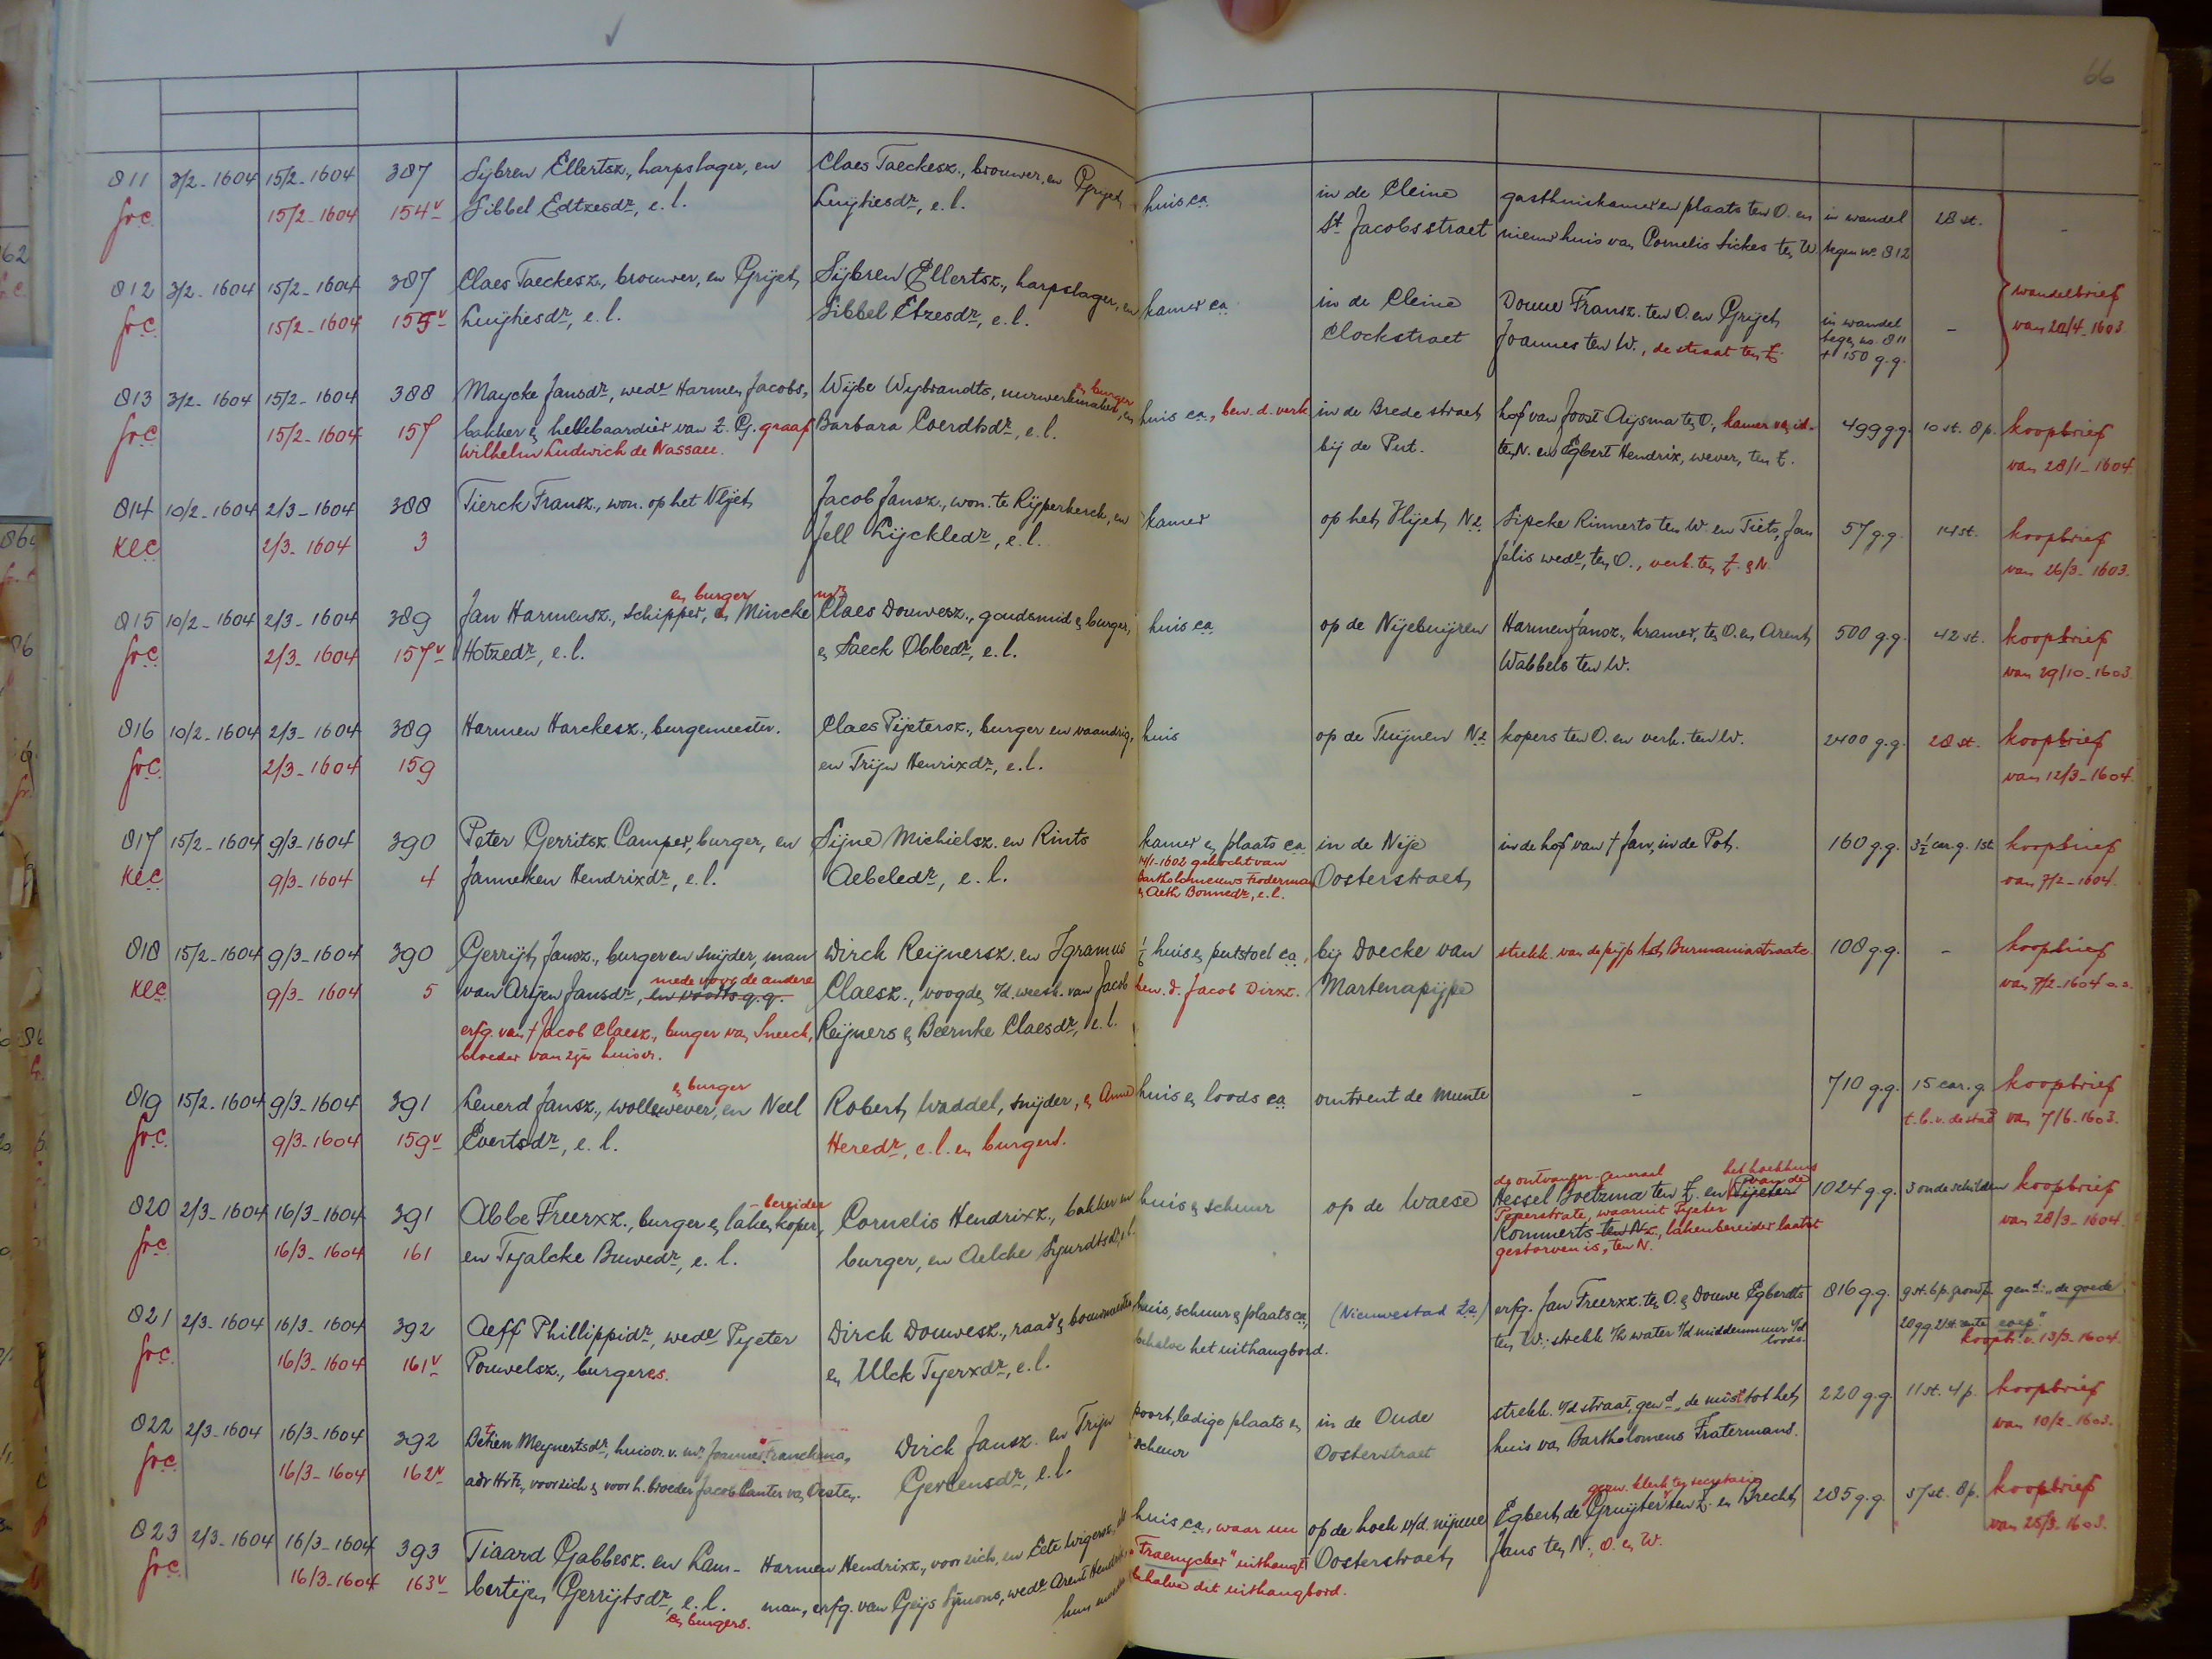 66
811 3/2-1604 15/2-1604 387 Sybren Ellertsz., harpslager, en Claes Taeckesz., brouwer, en Grijet huis ca. in de Cleine gasthuiskamer en plaats ten O. en in wandel 28 st. -
frc. 15/2-1604 154v Sibbel Edtzesdr, e.l. Luytiesdr, e.l. St Jacobsstraet nieuw huis van Cornelis Sickes ten W. tegen no. 812
812 3/2-1604 15/2-1604 387 Claes Taeckesz., brouwer, en Grijet Sijbren Ellertsz., harpslager, en kamer ca. in de Cleine Douwe Fransz. ten O. en Grijet in wandel - wandelbrief
frc. 15/2-1604 155v Luijtiesdr, e.l. Sibbel Etzesdr, e.l. Clockstraet Joannes ten W., de straat ten Z. tegen no. 811 van 20/4-1603.
+ 150 g.g.
813 3/2-1604 15/2-1604 388 Maycke Jansdr, wede Harmen Jacobs, Wijbe Wybrandts, uurwerkmaker, en burger en huis ca., bew. d. verk. in de Brede straet hof van Joost Aijsma ten O., kamer van id. 499 g.g. 10 st. 8 p. koopbrief
frc. 15/2-1604 157 bakker en hellebaardier van Z.G. graaf Barbara Coerdtsdr, e.l. bij de Put. ten N. en Egbert Hendrix, wever, ten Z. van 28/1-1604
Wilhelm Ludwich de Nassau.
814 10/2-1604 2/3-1604 388 Tierck Fransz., won. op het Vlijet Jacob Jansz., won. te Rijperkerck, en kamer op het Vlijet Nz. Sipcke Rinnerts ten W. en Tiets, Jan 57 g.g. 14 st. koopbrief
KeC 2/3-1604 3 Jell Lijckledr, e.l. Jelis wede, ten O., verk. ten Z. en N. van 26/3-1603.
815 10/2-1604 2/3-1604 389 Jan Harmensz., schipper, en burger en Mincke mr. Claes Douwesz., goudsmid en burger, huis ca. op de Nijebuijren Harmen Jansz., kramer, ten O. en Arent 500 g.g. 42 st. koopbrief
frc. 2/3-1604 157v Hotzedr, e.l. en Saeck Obbedr, e.l. Wabbels ten W. van 29/10-1603.
816 10/2-1604 2/3-1604 389 Harmen Harckesz., burgemeester. Claes Pijetersz., burger en vaandrig, huis op de Tuijnen Nz. kopers ten O. en verk. ten W. 2400 g.g. 28 st. koopbrief
frc. 2/3-1604 159 en Trijn Henrixdr, e.l. van 12/3-1604.
817 15/2-1604 9/3-1604 390 Peter Gerritsz. Camper, burger, en Sijne Michielsz. en Rints kamer en plaats ca. in de Nije in de hof van † Jan, in de Pot. 160 g.g. 3½ car.g. 1 st. koopbrief
KeC 9/3-1604 4 Janneken Hendrixdr, e.l. Aebeledr, e.l. 14/1-1602 gekocht van Oosterstraet van 7/2-1604.
en Aeth Bonnedr, e.l.
818 15/2-1604 9/3-1604 390 Gerrijt Jansz., burger en snijder, man Dirck Reijnersz. en Igramus 1/6 huis en putstoel ca., bij Doecke van strekk. van de pijp tot Burmaniastraatc. 108 g.g. - koopbrief
KeC 9/3-1604 5 van Arijen Jansdr, mede voor de andere en voorts g.g. Claesz., voogden o/d. weesk. van Jacob bew. d. Jacob Dirxz. Martenapijpe van 7/2-1604 a.s.
erfg. van † Jacob Claesz., burger van Sneeck, Reijners en Beernke Claesdr, e.l.
broeder van zijn huisvr.
819 15/2-1604 9/3-1604 391 Lenerd Jansz., wollewever, en burger en Neel Robert Waddel, snijder, en Anna huis en loods ca. omtrent de Munte - 710 g.g. 15 car.g. koopbrief
frc. 9/3-1604 159v Evertsdr, e.l. Heredr, e.l. en burgers. t.b.v. de stad van 7/6-1603.
820 2/3-1604 16/3-1604 391 Abbe Freerxz., burger en laken koper, -bereider Cornelis Hendrixz., bakker en huis en schuur op de Waese de ontvanger generael Hessel Boetzma ten Z. en het hoekhuis van de Tijeter 1024 g.g. 3 oude schilden koopbrief
frc. 16/3-1604 161 en Tyalcke Buwedr, e.l. burger, en Aelcke Sjuurdtsdr, e.l. Peperstrate, waaruit Tyeter van 28/3-1604.
Rommerts ten Nz., lakenbereider laatst
gestorven is, ten N.
821 2/3-1604 16/3-1604 392 Aeff Phillippidr, wede Pyeter Dirck Douwesz., raad en bouwmeester huis, schuur en plaats ca. (Nieuwestad Zz.) erfg. Jan Freerxz. ten O. en Douwe Egberdts 816 g.g. 9 st. 6 p. grondp. gend: "de goede
frc. 16/3-1604 161v Pouwelsz., burgeres. en Ulck Tyerxdr, e.l. behalve het uithangbord. ten W.; strekk. v/h water t/d middenmuur v/d loods. 20 gg 21 st. rente coep"
koopb. v. 13/3-1604.
822 2/3-1604 16/3-1604 392 Detien Meynertsdr, huisvr. v. mr. Joannes Franckena, Dirck Jansz. en Trijn poort, ledige plaats en in de Oude strekk. v/d straat, gend "de mist tot het 220 g.g. 11 st. 4 p. koopbrief
frc. 16/3-1604 162v adv Hof, voor zich en voor h. broeder Jacob Canter van Oosten. Gerbensdr, e.l. schuur Oosterstraet huis van Bartholomeus Fratermans. van 10/2-1603.
823 2/3-1604 16/3-1604 393 Tiaard Gabbesz. en Lam- Harmen Hendrixz., voor zich, en Ecte Wigersz., als huis ca., waar nu op de hoek v/d. nijuue Egbert de Gruijter gezw. klerk ter secretarie ten Z. en Brecht 285 g.g. 57 st. 8 p. koopbrief
frc. 16/3-1604 163v bertijen Gerrijtsdr, e.l. man, erfg. van Geijs Sijmons, wede Arent Hendrix "Fraenycker" uithangt Oosterstraet Jans ten N., O. en W. van 25/3-1603.
en burgers. hun behalve dit uithangbord.